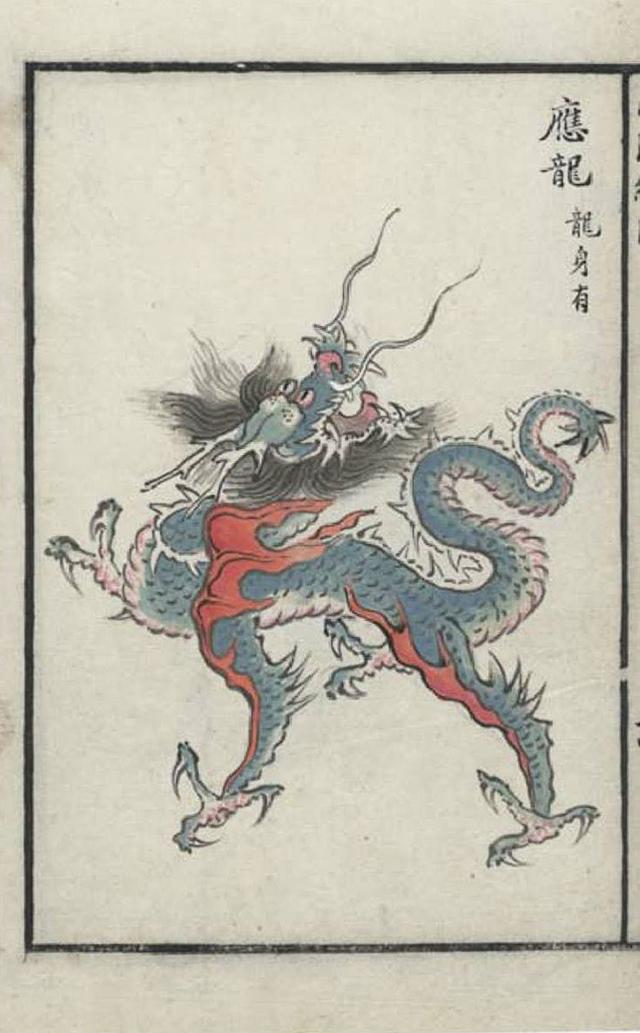 應龍
龍身有